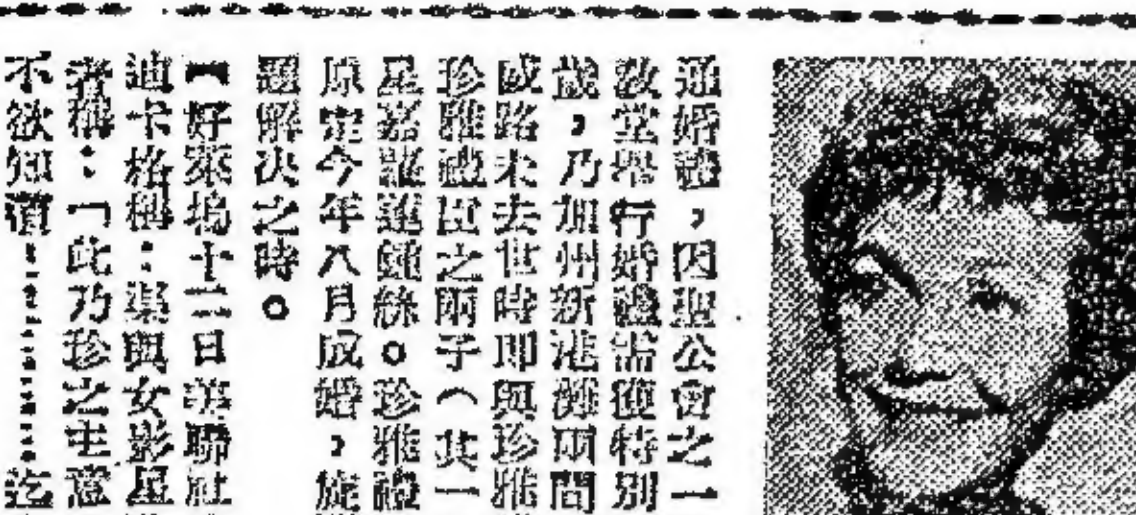 通婚證，因聖公會之一
教堂舉行婚禮需獲特別
歲，乃加州新港灘兩間
威路未去世時即與珍雅
珍雅禮臣之兩子（其一
星嘉羅蓮鍾絲。珍雅禮
原定今年八月成婚，旋
題解決之時。
【好萊塢十二日美聯社
迪卡格稱：渠與女影星
者稱：「此乃珍之主意
不欲知道！…………迄